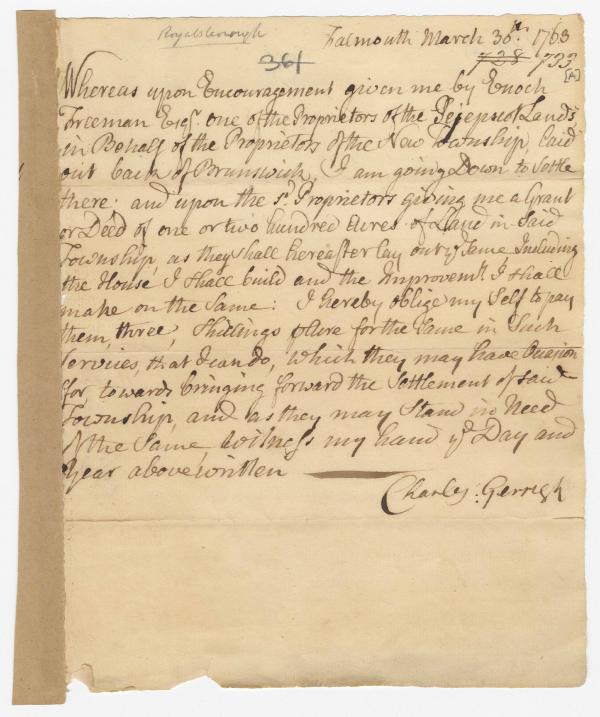 Royalsborough
Falmouth March 30th. 1763
364
728 733
[A]
Whereas upon Encouragement given me by Enoch
Freeman Esqr. one of the Proprietors of the Pejepscot Lands,
in Behalf of the Proprietors of the New Township, laid
out back of Brunswick, I am going Down to settle
there: and upon the sd. Proprietors giving me a Grant
or Deed of one or two hundred Acres of Land in said
Township, as they shall hereafter lay out ye. same Including
the House, I shall build and the Improvemts. I shall
make on the Same: I hereby oblige my Self to pay
them, three, Shillings pAcre for the Same in Such
Services, that I can do, which they may have Occasion
for, towards bringing forward the Settlement of said
Township, and as they may Stand in Need
of the Same, witness my hand ye. Day and
Year above written
Charles: Gerrish